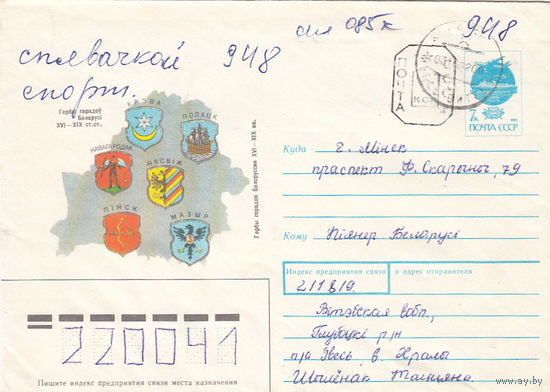 спявачкой 948
спорт.
948
Гербы гарадоў
Беларусі
XVI — XIX ст.ст.
КРЭВА
ПОЛАЦК
НАВАГАРОДАК
НЯСВІЖ
ПІНСК
МАЗЫР
Гербы городов Белоруссии XVI—XIX вв.
ПОЧТА
7к
ПОЧТА СССР
Куда г. Мінск
праспект Ф. Скарыны, 79
Кому Піянер Беларусі
Индекс предприятия связи и адрес отправителя
211819.
Віцебская вобл.,
Глыбоцкі р/н
п/а
в.
Таццяна
220041
Пишите индекс предприятия связи места назначения
www.ay.by